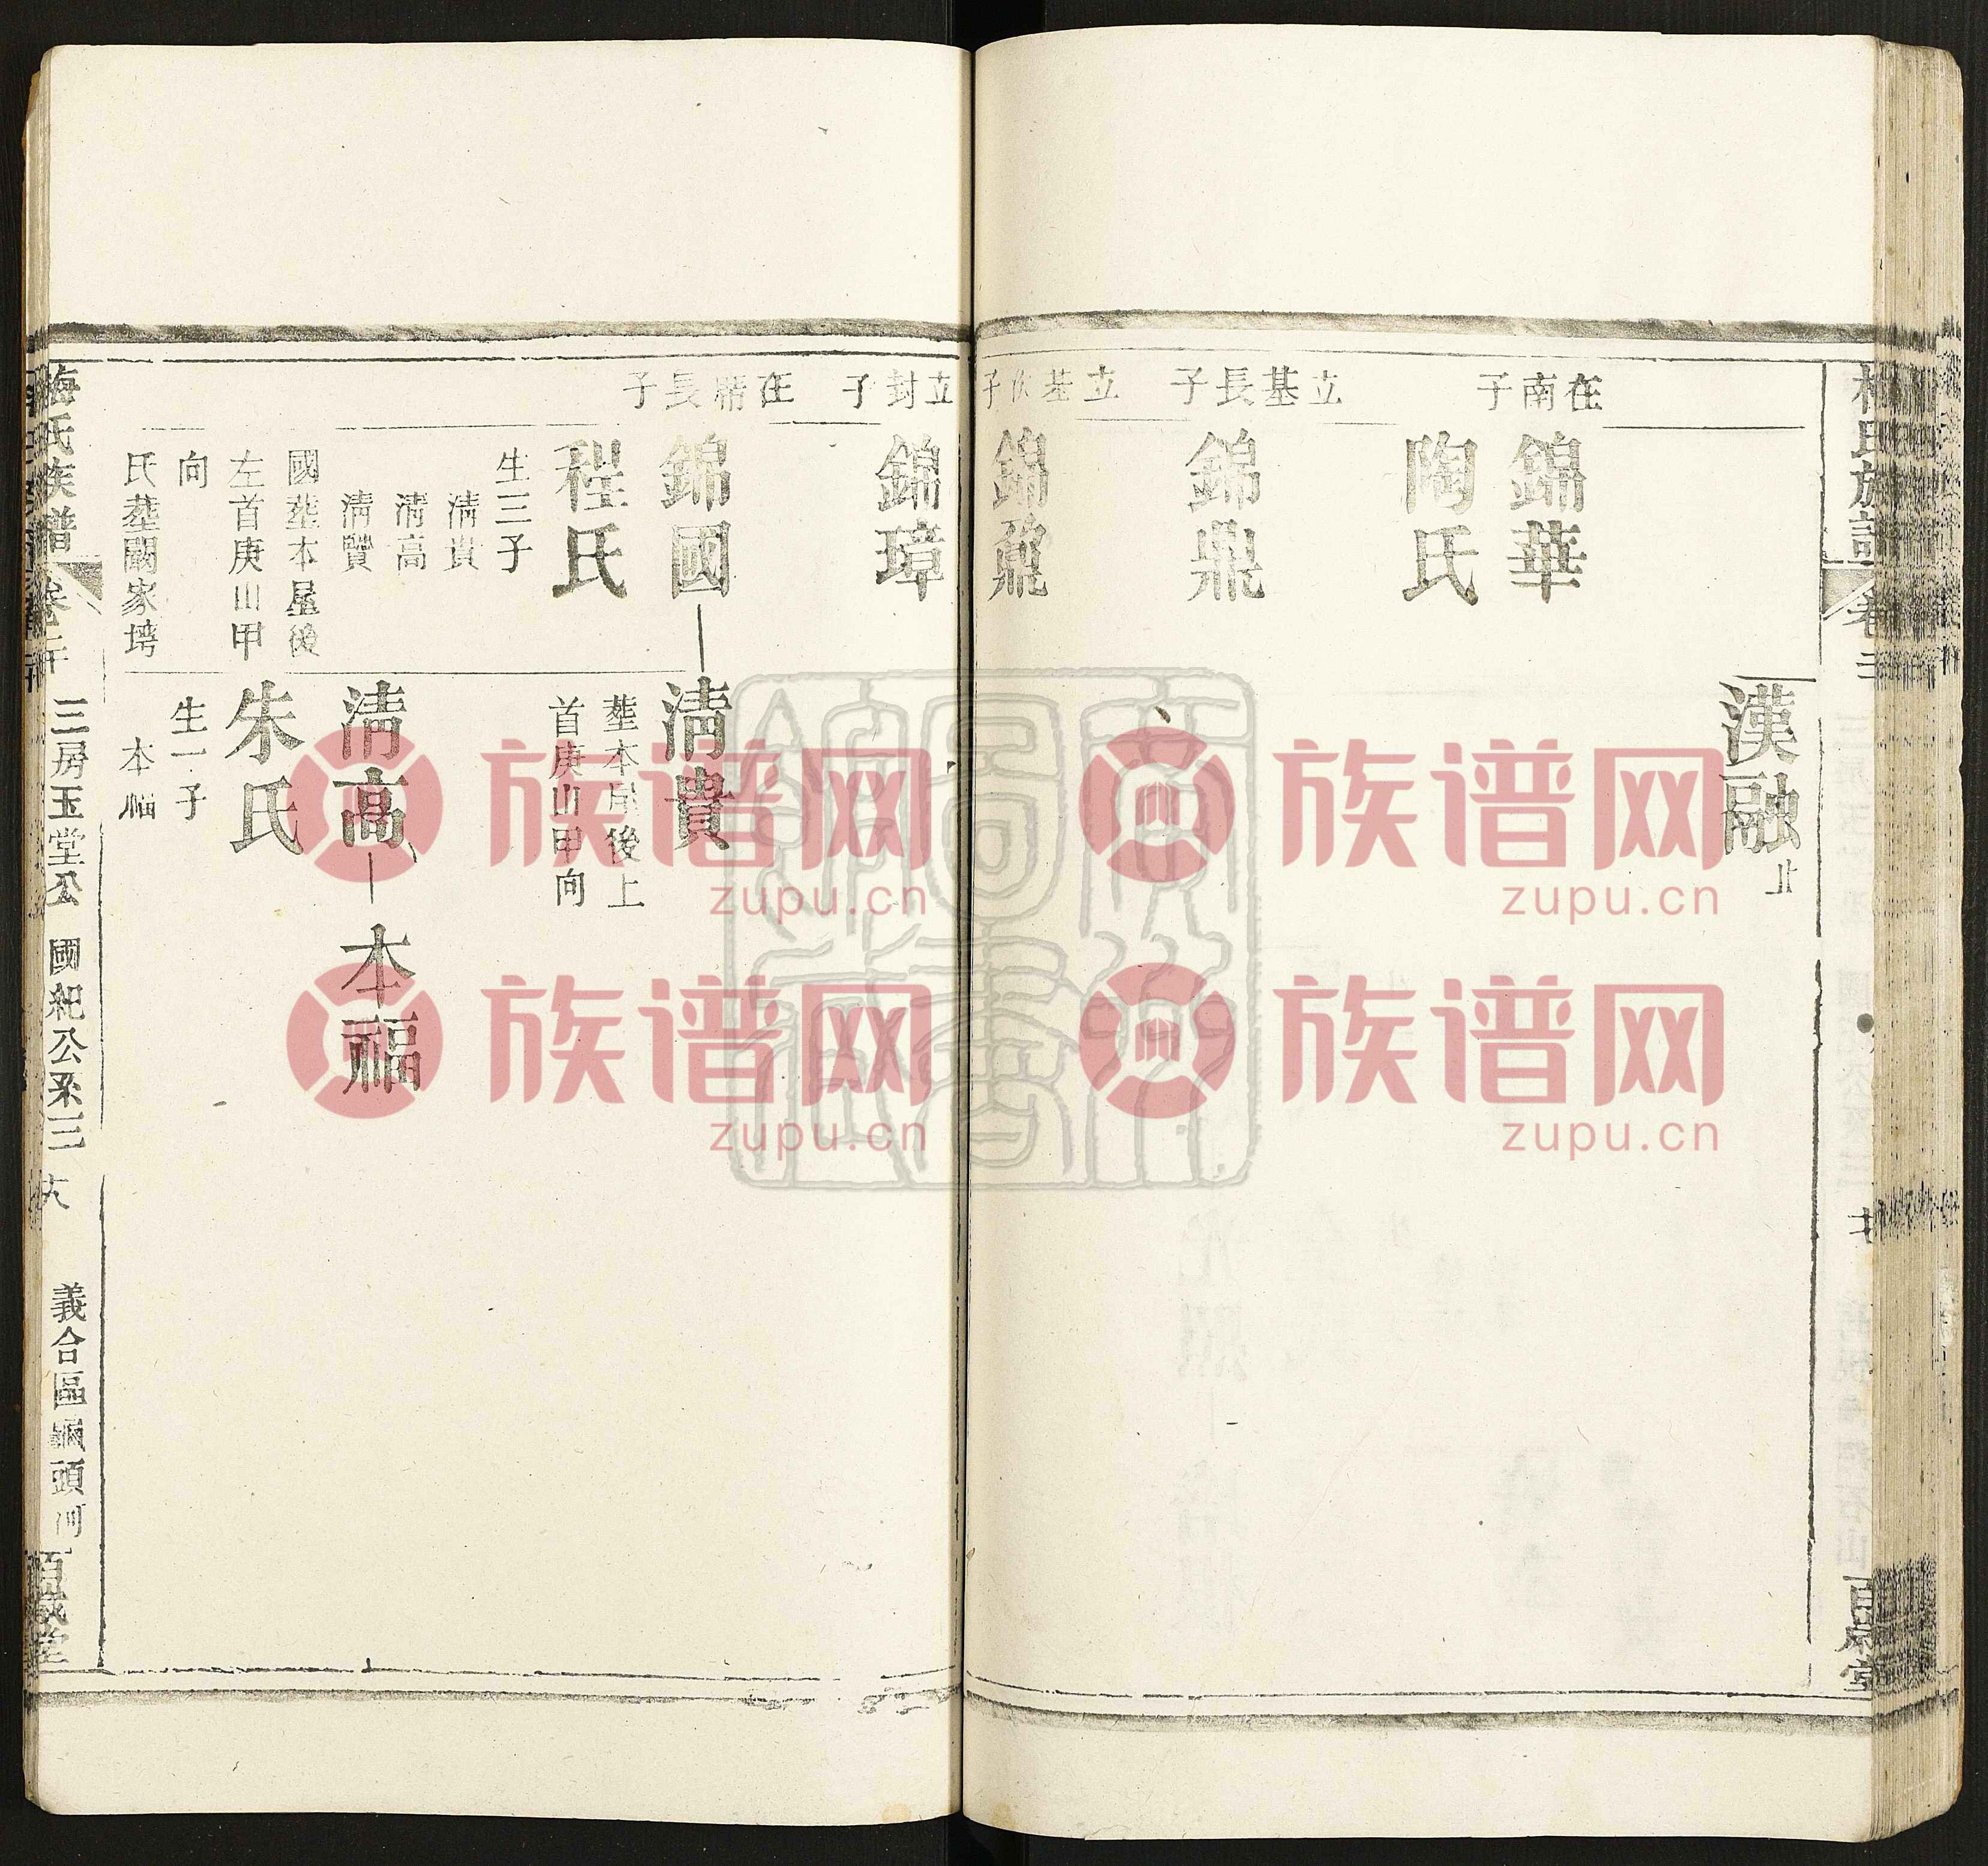 氏族譜
漢融
北
在南子
錦華
陶氏
立基長子
錦鼎
立基次子
錦鼐
立封子
錦璋
在朋長子
錦國
清貴
塟本屋後上
首庚山甲向
程氏
生三子
清貴
清高
清賢
國塟本屋後
左首庚山甲
向
氏塟闞家塝
清高
本福
朱氏
生一子
本福
梅氏族譜
卷二十
三房玉堂公
國紀公系三
六
義合區
頭河
百歲堂
族谱网
zupu.cn
族谱网
zupu.cn
族谱网
zupu.cn
族谱网
zupu.cn